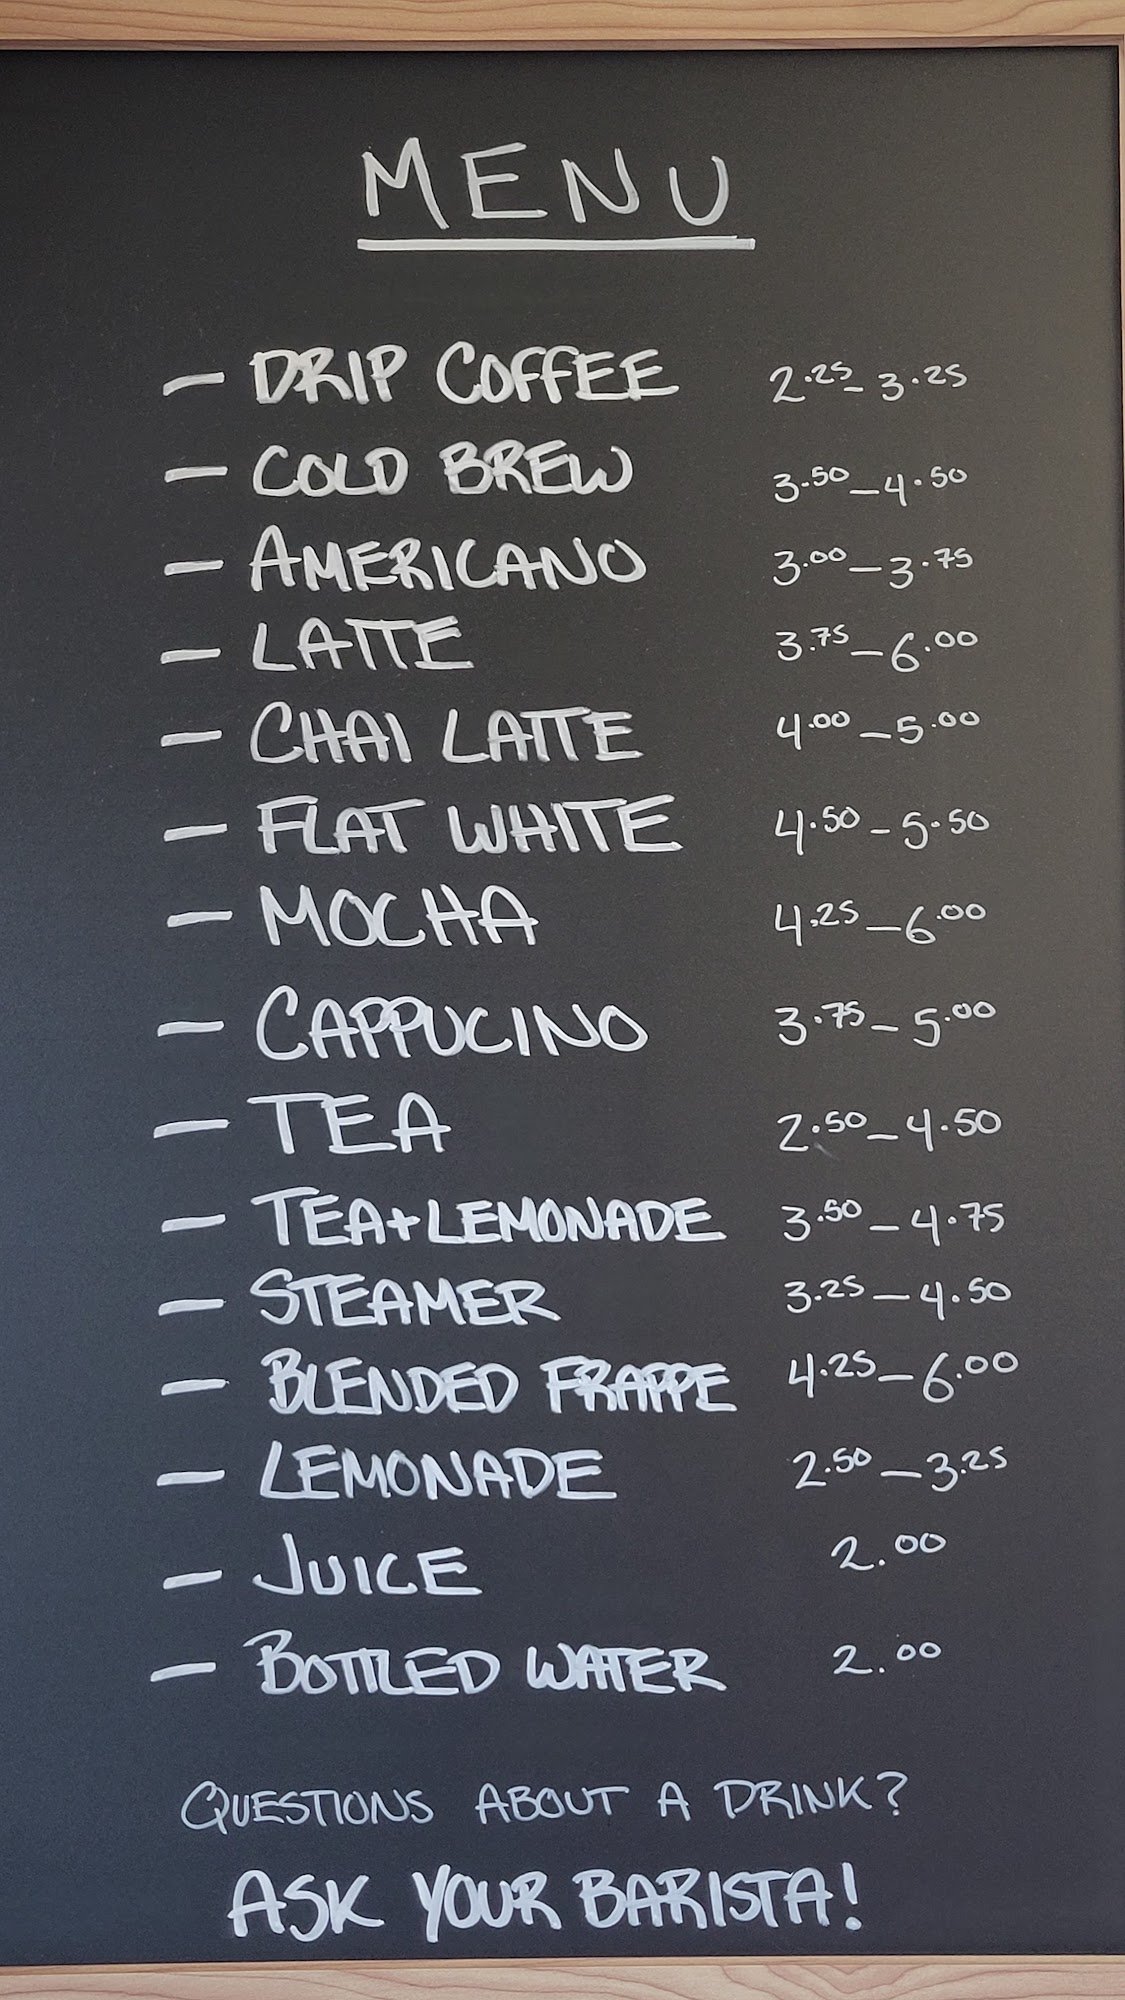 MENU
- DRIP COFFEE 2.25 - 3.25
- COLD BREW 3.50 - 4.50
- AMERICANO 3.00 - 3.75
- LATTE 3.75 - 6.00
- CHAI LATTE 4.00 - 5.00
- FLAT WHITE 4.50 - 5.50
- MOCHA 4.25 - 6.00
- CAPPUCINO 3.75 - 5.00
- TEA 2.50 - 4.50
- TEA+LEMONADE 3.50 - 4.75
- STEAMER 3.25 - 4.50
- BLENDED FRAPPE 4.25 - 6.00
- LEMONADE 2.50 - 3.25
- JUICE 2.00
- BOTTLED WATER 2.00
QUESTIONS ABOUT A DRINK?
ASK YOUR BARISTA!